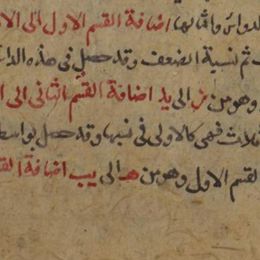 الدوائر وامثالها اضافة القسم الاول الى الا
ثم نسبة الضعف وقد حصل فى هذه الدا
وهو من ز الى يد اضافة القسم الثانى الى ا
ثلاث فهى كالاولى فى نسبها وقد حصل بواسط
القسم الاول وهو من هـ الى يب اضافة الق